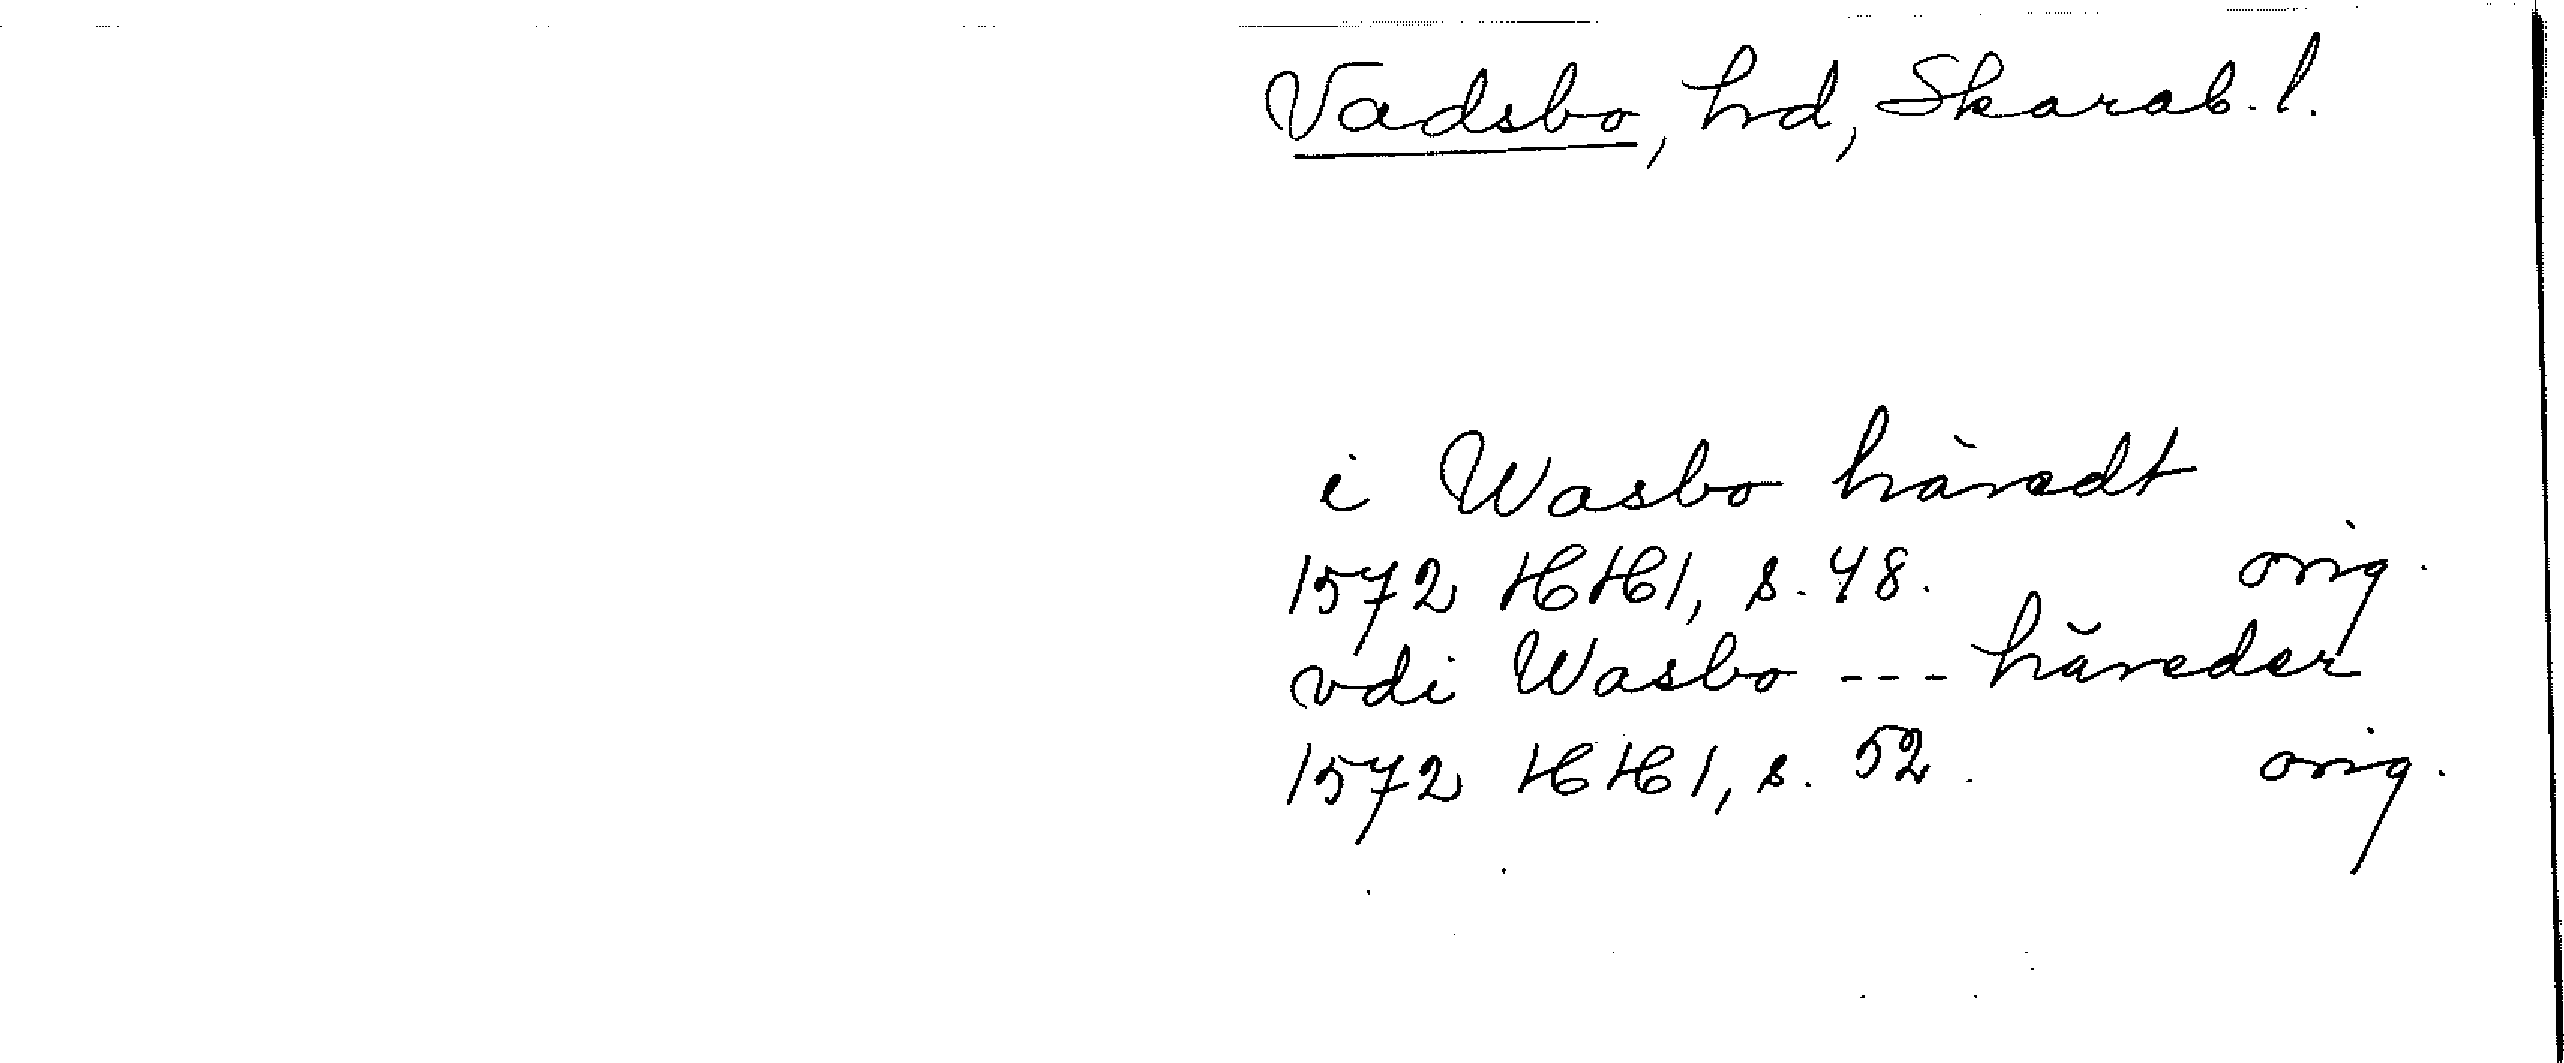 Vadsbo, hd, Skarab. l.
i Wasbo häredt
1572 HH1, s. 48. orig.
vdi Wasbo --- häreder
1572 HH1, s. 52. orig.